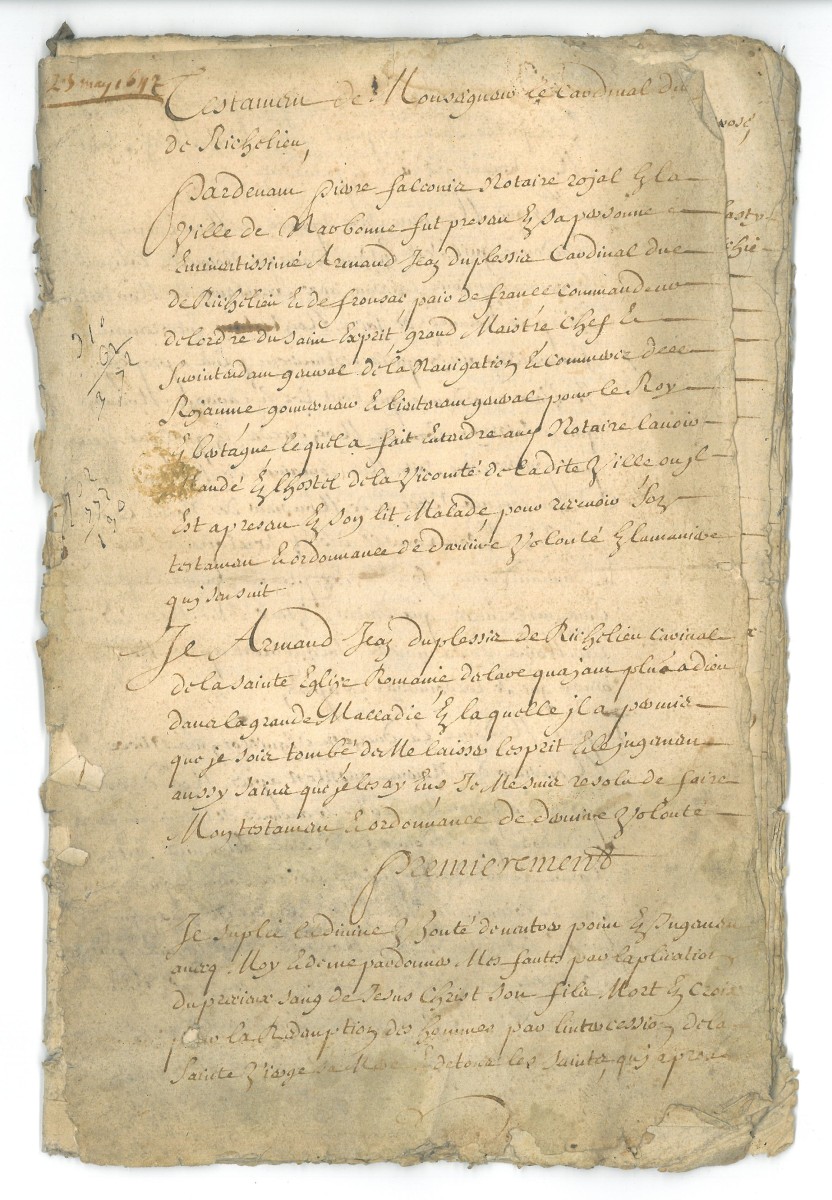 23 may 1642
Testaman de Monsegneur le Cardinal du
de Richelieu,
Pardevam Pierre falconis Notaire rojal En la
Ville de Narbonne fut presan En sa personne
Eminentissime Armand Jean duplessis Cardinal duc
de Richelieu Et de fronsac pair de france commandeur
de lordre du saint Esprit grand Maistre Chef Et
Surintandam general de la Navigation Et commerce de ce
Rojaume gouverneur Et lieutenam general pour le Roy
En bretagne lequel a fait Entandre auz Notaire lavoir
mandé En lhostel de la Vicomté de ladite Ville ou jl
Est apresan En son lit Malade pour recevoir son
testaman Et ordonnance de derniere Volonté En la maniere
quj sensuit
Je Armand Jean duplessis de Richelieu cardinal
de la sainte Eglise Romaine declare quajam pleu a dieu
dans la grande Malladié En laquelle jl a permis
que je sois tombé de Me laisser lesprit Et le jugeman
aussy sains que je les ay Eus Je Me suis resolu de faire
Mon testaman Et ordonnance de derniere Volonté
Premierement
Je suplie la divine bonté de nentrer poin En Jugeman
avecq Moy Et de me pardonner Mes fautes par laplication
du precieux sang de Jesus Christ son fils Mort En Croix
pour la Redemption des hommes par lintercession de la
Sainte Vierge sa Mere Et de tous les saints quj apres